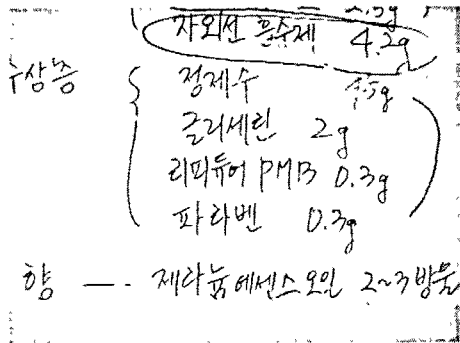 자외선 흡수제 4.2g
수상층
정제수 4.5g
글리세린 2g
리피듀어 PMB 0.3g
파라벤 0.3g
향 — 제라늄 에센스 오일 2~3방울